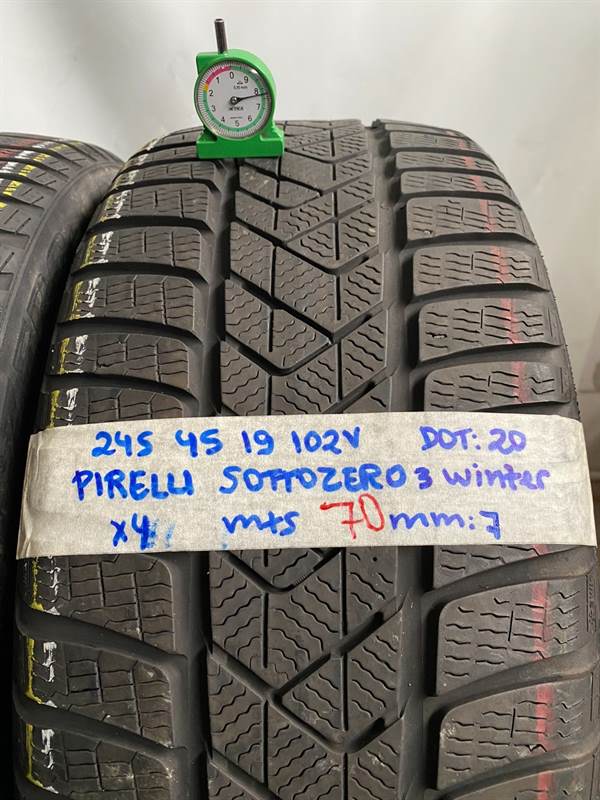 1 0 9
2 8
3 7
4 5 6
245 45 19 102V DOT: 20
PIRELLI SOTTOZERO 3 winter
x4 mts 70 mm: 7